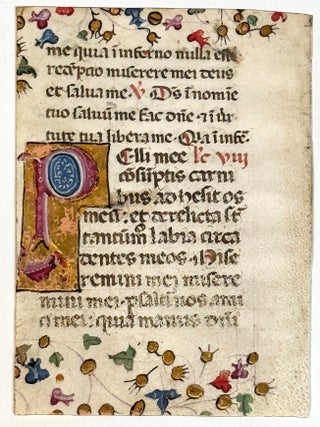 me quia ī inferno nulla est
redēptio miserere mei deus
et salua me V Ds ī nomīe
tuo saluū me fac dn̄e · et ī uir
tute tua libera me · Quia ī infē.
Pelli mee lc VIII
cōsūptis carni
bus adhesit os
meū: et derelicta sūt
tantum labia circa
dentes meos · Mise
remini mei misere
mini mei · psaltī uos ami
ci mei: quia manus dn̄i